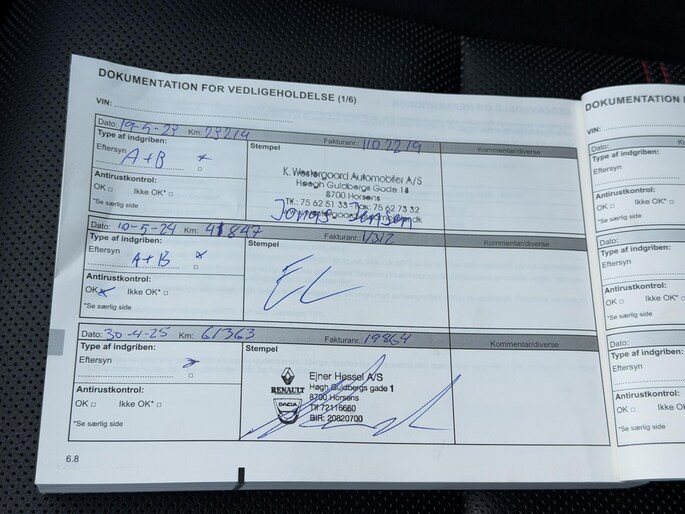 DOKUMENTATION FOR VEDLIGEHOLDELSE (1/6)
VIN:
Dato: 19-5-23 Km: 23214 Fakturanr.: 1102219 Kommentar/diverse
Type af indgriben:
Eftersyn A+B
Antirustkontrol:
OK Ikke OK*
*Se særlig side
Stempel
K. Westergaard Automobiler A/S
Høegh Guldbergs Gade 18
8700 Horsens
Tlf.: 75 62 51 33 - Fax: 75 62 73 32
Jonas Jensen
Dato: 10-5-24 Km: 41847 Fakturanr.: Kommentar/diverse
Type af indgriben:
Eftersyn A+B
Antirustkontrol:
OK Ikke OK*
*Se særlig side
Stempel
Dato: 30-4-25 Km: 61363 Fakturanr.: 19864 Kommentar/diverse
Type af indgriben:
Eftersyn
Antirustkontrol:
OK Ikke OK*
*Se særlig side
Stempel
RENAULT
DACIA
Ejner Hessel A/S
Høgh Guldbergs gade 1
8700 Horsens
Tlf 72116660
BIR: 20820700
6.8
DOKUMENTATION
VIN:
Dato:
Type af indgriben:
Eftersyn
Antirustkontrol:
OK Ikke OK*
*Se særlig side
Dato:
Type af indgriben:
Eftersyn
Antirustkontrol:
OK Ikke OK*
*Se særlig side
Dato:
Type af indgriben:
Eftersyn
Antirustkontrol:
OK Ikke OK*
*Se særlig side